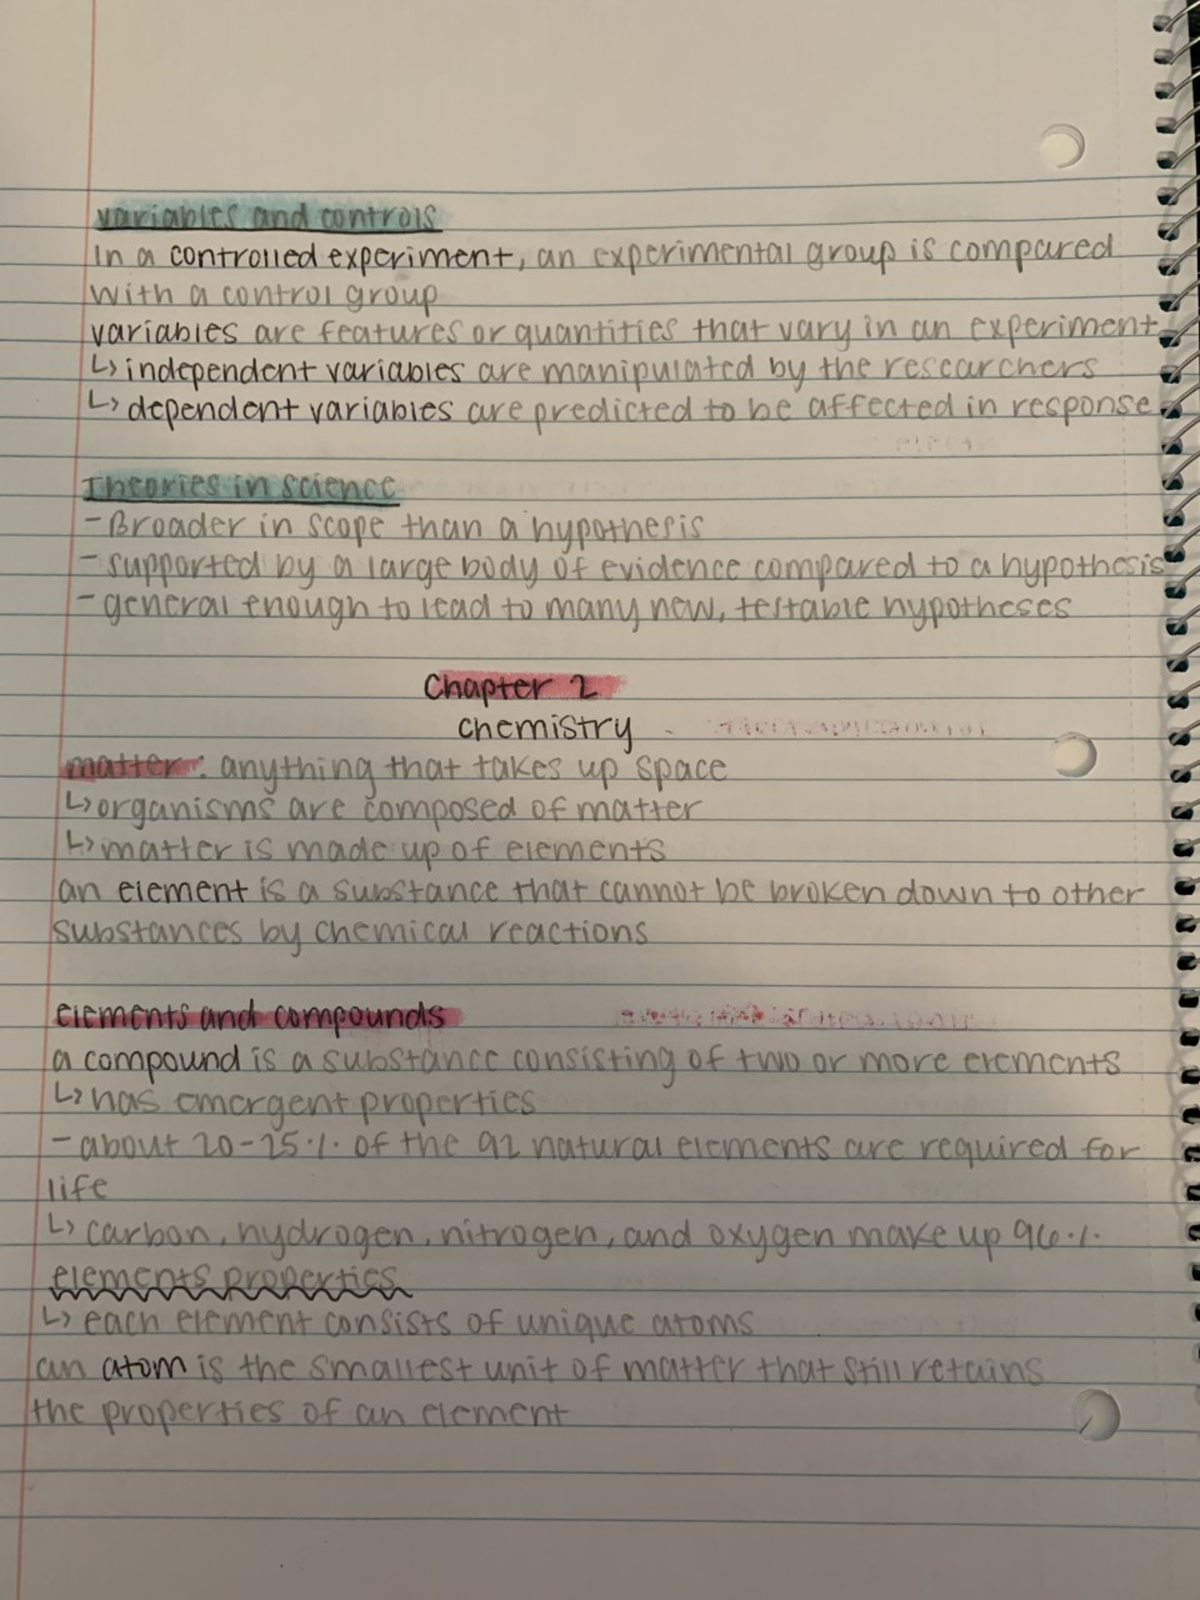 variables and controls
In a controlled experiment, an experimental group is compared
with a control group
variables are features or quantities that vary in an experiment
↳ independent variables are manipulated by the researchers
↳ dependent variables are predicted to be affected in response
Theories in science
- Broader in scope than a hypothesis
- supported by a large body of evidence compared to a hypothesis
- general enough to lead to many new, testable hypotheses
Chapter 2
chemistry
matter: anything that takes up space
↳ organisms are composed of matter
↳ matter is made up of elements
an element is a substance that cannot be broken down to other
substances by chemical reactions
elements and compounds
a compound is a substance consisting of two or more elements
↳ has emergent properties
- about 20-25% of the 92 natural elements are required for
life
↳ carbon, hydrogen, nitrogen, and oxygen make up 96%
elements properties
↳ each element consists of unique atoms
an atom is the smallest unit of matter that still retains
the properties of an element